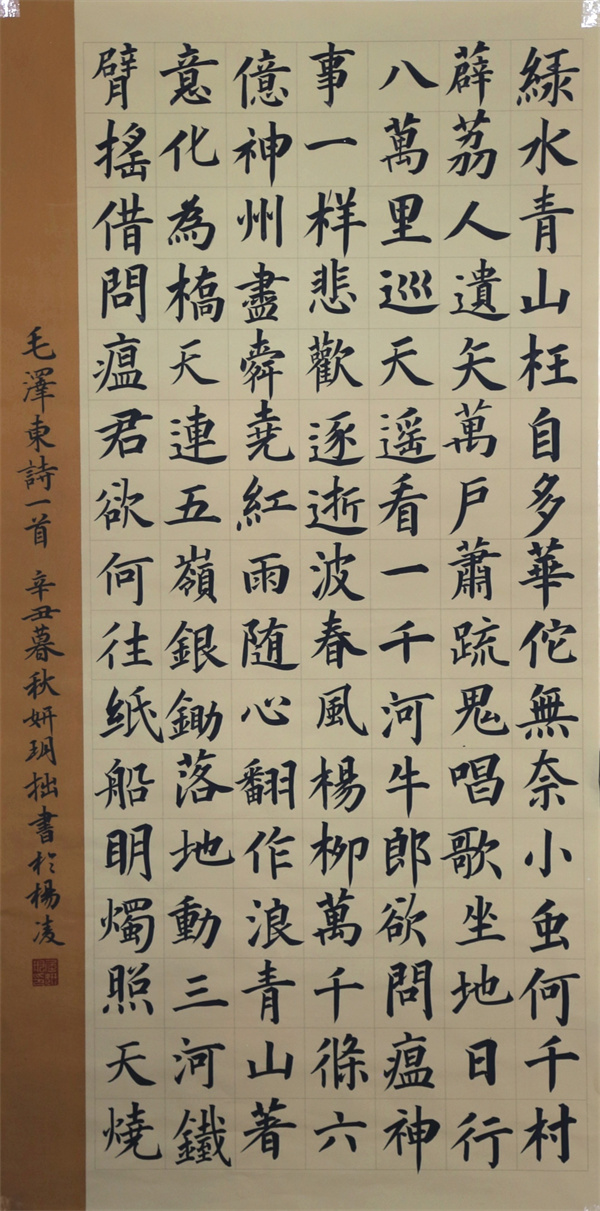 緑水青山枉自多華佗無奈小虫何千村
薜荔人遺矢萬戶蕭疏鬼唱歌坐地日行
八萬里巡天遥看一千河牛郎欲問瘟神
事一样悲歡逐逝波春風楊柳萬千條六
億神州盡舜堯紅雨随心翻作浪青山著
意化為橋天連五嶺銀鋤落地動三河鐵
臂搖借問瘟君欲何往紙船明燭照天燒
毛澤東詩一首 辛丑暮秋妍玥拙書於楊凌